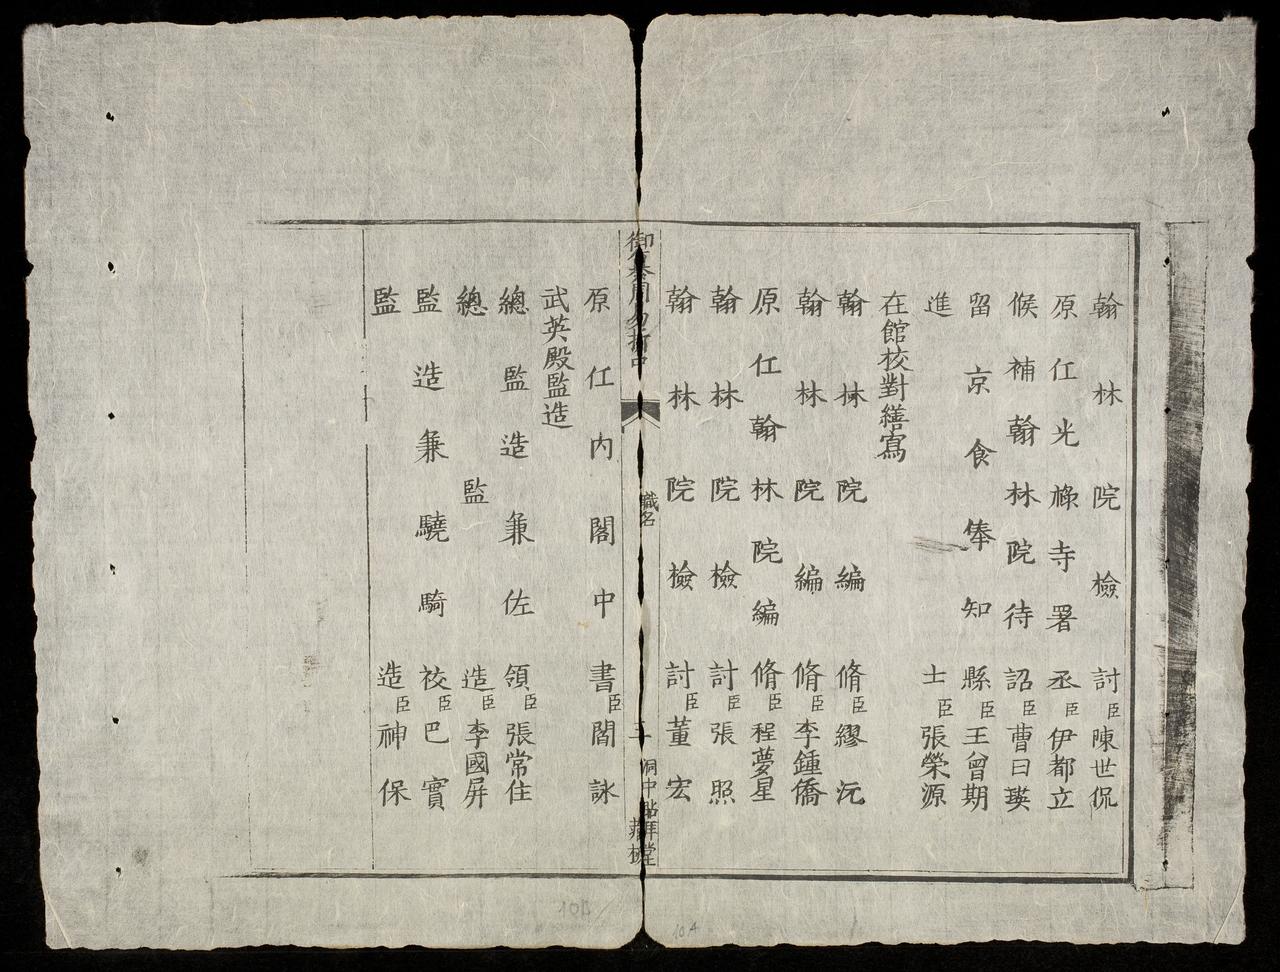 翰林院檢討臣陳世侃
原仕光祿寺署丞臣伊都立
候補翰林院待詔臣曹曰瑛
留京食俸知縣臣王曾期
進士臣張榮源
在館校對繕寫
翰林院編脩臣繆沅
翰林院編脩臣李鍾僑
原仕翰林院編脩臣程夢星
翰林院檢討臣張照
翰林院檢討臣董宏
御纂周易折中
職名
洞中貼拜堂
藏板
原仕內閣中書臣閻詠
武英殿監造
總監造兼佐領臣張常住
總監造臣李國屏
監造兼驍騎校臣巴實
監造臣神保
104